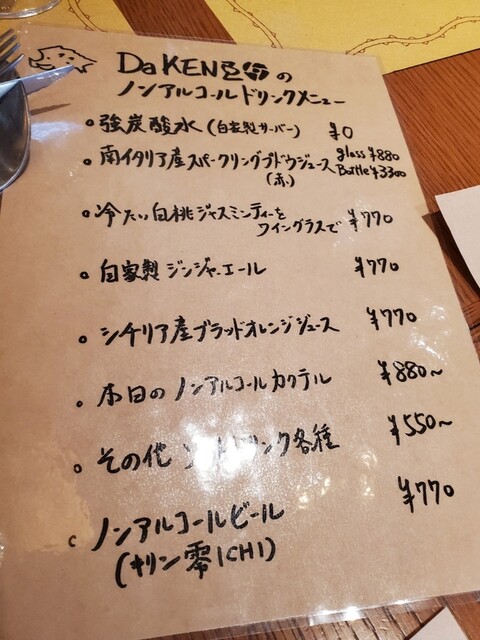 Da KENZOの
ノンアルコールドリンクメニュー
強炭酸水(自家製サーバー) ¥0
南イタリア産スパークリングブドウジュース glass ¥880
(赤) Bottle ¥3300
冷たい白桃ジャスミンティーを
ワイングラスで ¥770
自家製ジンジャーエール ¥770
シチリア産ブラッドオレンジジュース ¥770
本日のノンアルコールカクテル ¥880~
その他ソフトドリンク各種 ¥550~
ノンアルコールビール ¥770
(キリン零ICHI)